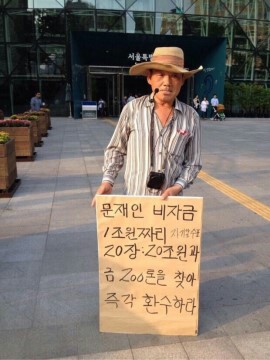 서울특별
문재인 비자금
1조원짜리
20장:20조원과
금 200톤을 찾아
즉각 환수하라